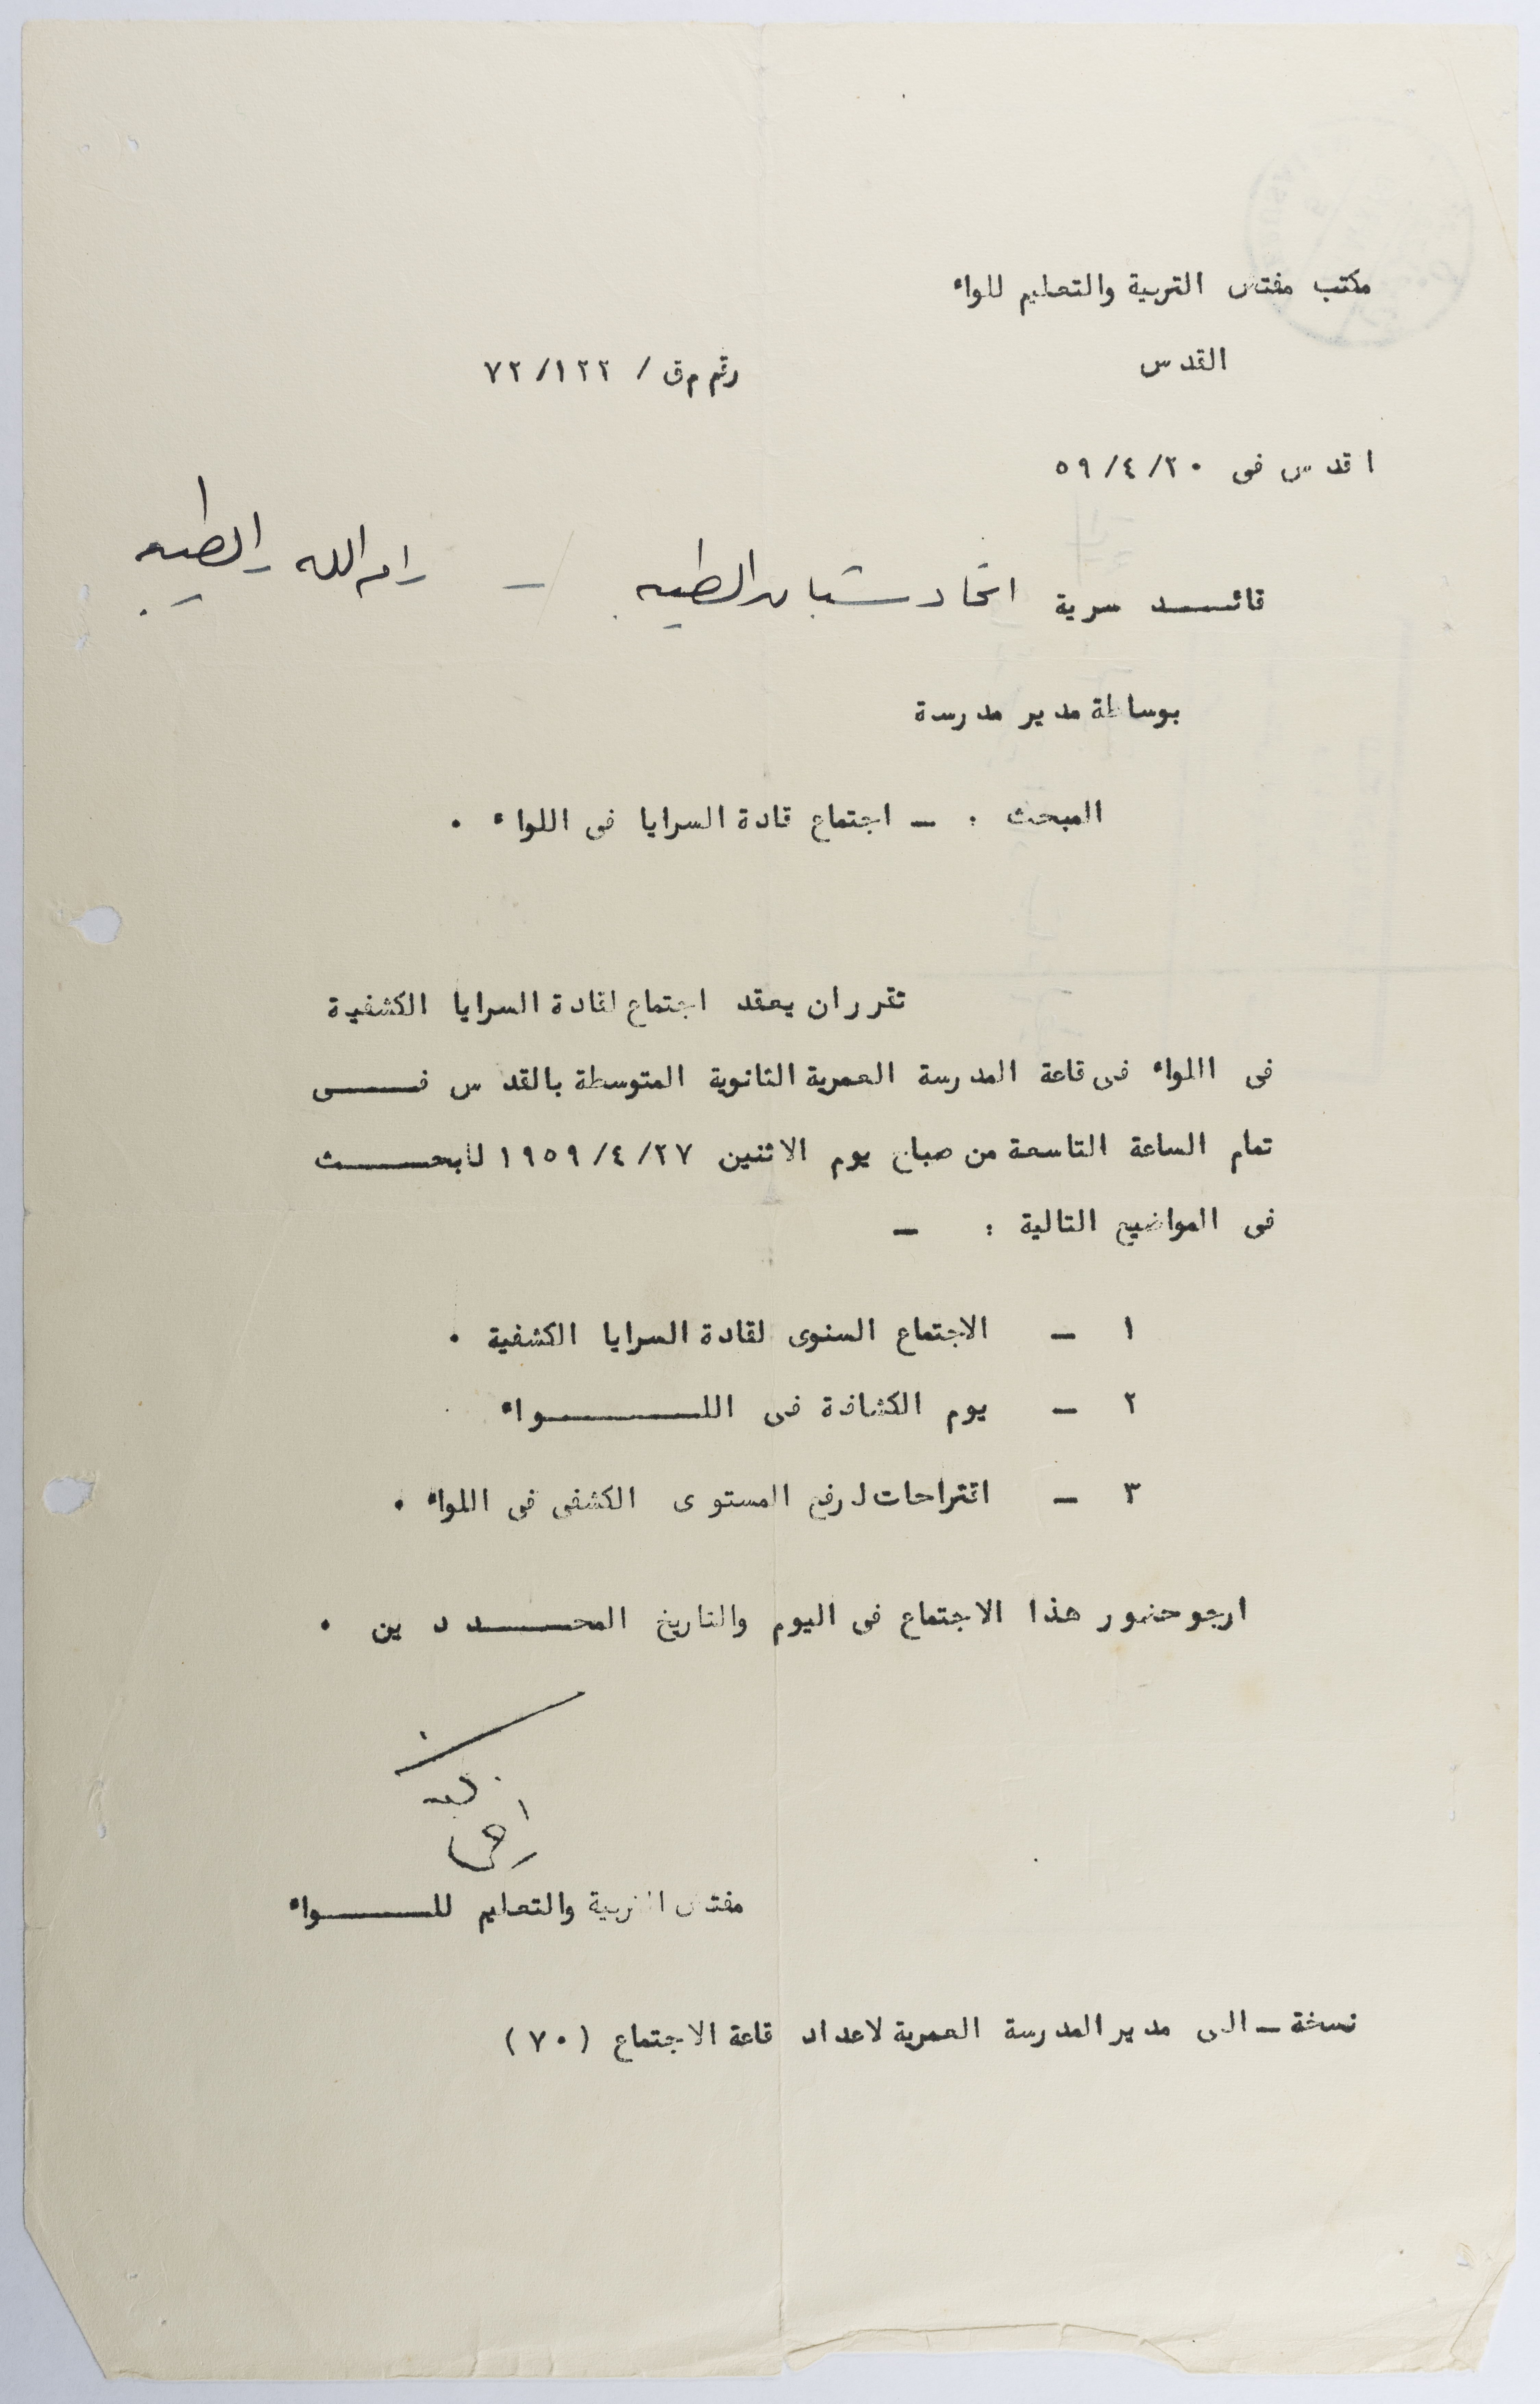 مكتب مفتش التربية والتعليم للواء
القدس
رقم م ق / ١٢٢/ ٧٢
ا قدس فى ٢٠/ ٤/ ٥٩
قائـــد سرية اتحاد شبان الطيبه – رام الله - الطيبه
بوساطة مدير مدرسة
المبحث : – اجتماع قادة السرايا فى اللواء .
تقرر ان يعقد اجتماع لقادة السرايا الكشفية
فى اللواء فى قاعة المدرسة العمرية الثانوية المتوسطة بالقدس فـــــى
تمام الساعة التاسعة من صباح يوم الاثنين ٢٧/ ٤/ ١٩٥٩ للبحـــــث
فى المواضيع التالية : –
١ – الاجتماع السنوى لقادة السرايا الكشفية .
٢ – يوم الكشافة فى اللــــــــواء
٣ – اقتراحات لرفع المستوى الكشفى فى اللواء .
ارجو حضور هذا الاجتماع فى اليوم والتاريخ المحـــــددين .
مفتش التربية والتعليم للـــــــواء
نسخة – الى مدير المدرسة العمرية لاعداد قاعة الاجتماع (٧٠)